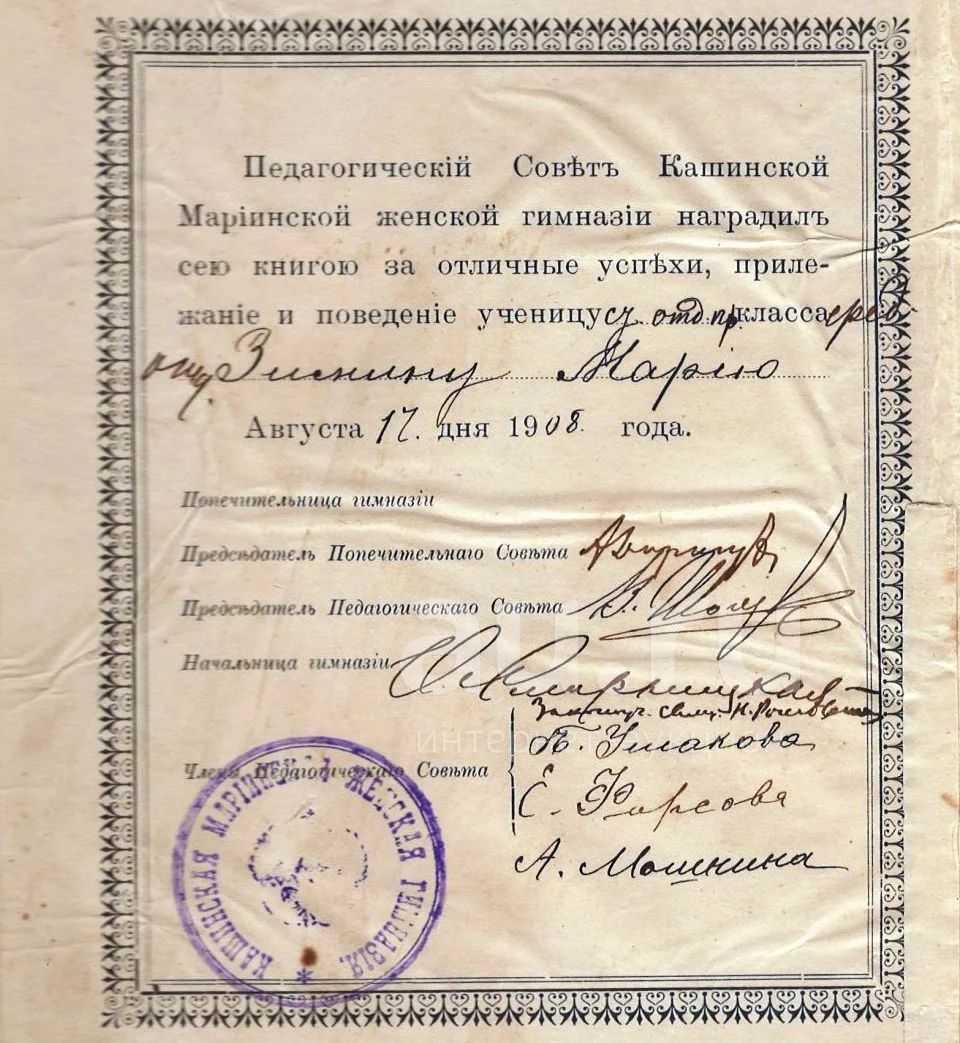 Педагогическій Совѣтъ Кашинской
Маріинской женской гимназіи наградилъ
сею книгою за отличные успѣхи, приле-
жаніе и поведеніе ученицу отд. пр. класса
Зиснину Марію
Августа 17. дня 1908 года.
Попечительница гимназіи
Предсѣдатель Попечительнаго Совѣта
Предсѣдатель Педагогическаго Совѣта
Начальница гимназіи
Члены Педагогическаго Совѣта
Ушакова
Е. Фирсова
А. Мошнина
КАШИНСКАЯ МАРІИНСКАЯ ЖЕНСКАЯ ГИМНАЗІЯ.